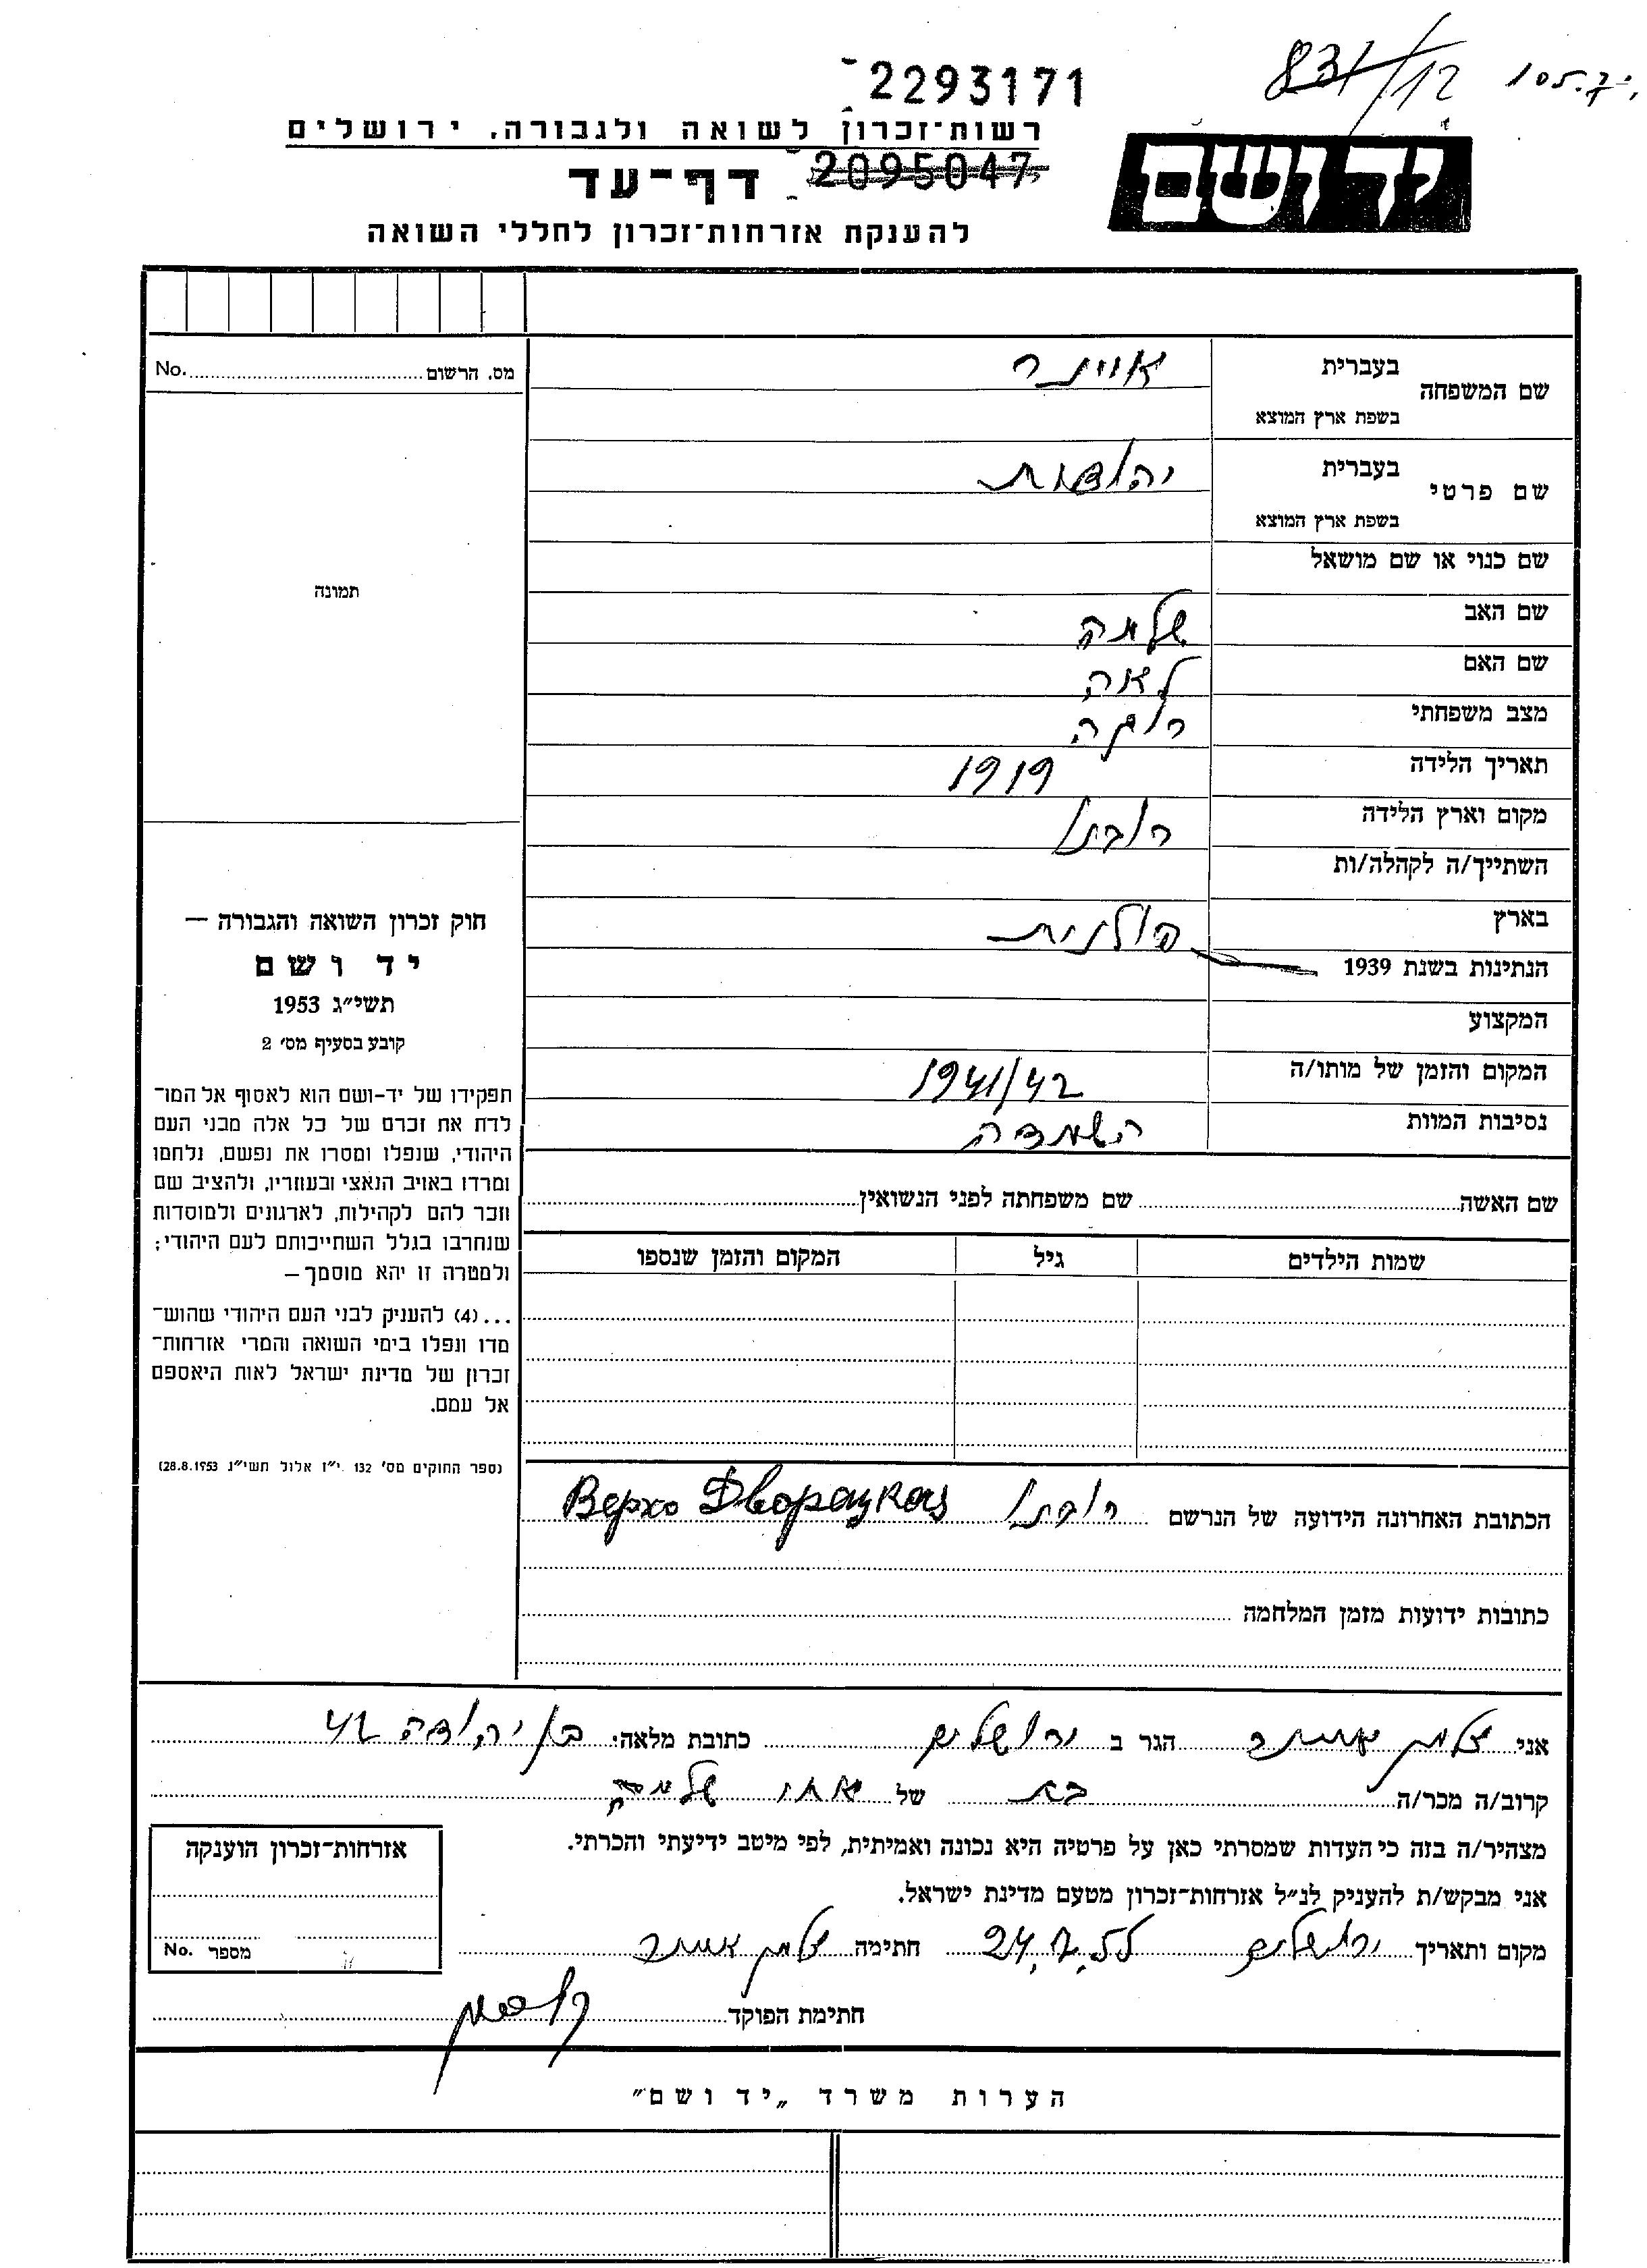 831/12
2293171
רשות־זכרון לשואה ולגבורה. ירושלים
יד ושם
דף־עד 2095047
להענקת אזרחות־זכרון לחללי השואה
No. מס. הרשום
שם המשפחה
בעברית אוינר
בשפת ארץ המוצא
שם פרטי
בעברית יהודית
בשפת ארץ המוצא
שם כנוי או שם מושאל
שם האב שלמה
שם האם לאה
מצב משפחתי רוקה
תאריך הלידה 1919
מקום וארץ הלידה רובנו
השתייך/ה לקהלה/ות
בארץ
הנתינות בשנת 1939 פולנית
המקצוע
המקום והזמן של מותו/ה 1941/42
נסיבות המוות השמדה
שם האשה שם משפחתה לפני הנשואין
שמות הילדים גיל המקום והזמן שנספו
הכתובת האחרונה הידועה של הנרשם רובנו Верхо Дворацкая
כתובות ידועות מזמן המלחמה
תמונה
חוק זכרון השואה והגבורה —
יד ושם
תשי״ג 1953
קובע בסעיף מס׳ 2
תפקידו של יד-ושם הוא לאסוף אל המו־
לדת את זכרם של כל אלה מבני העם
היהודי, שנפלו ומסרו את נפשם, נלחמו
ומרדו באויב הנאצי ובעוזריו, ולהציב שם
וזכר להם לקהילות, לארגונים ולמוסדות
שנחרבו בגלל השתייכותם לעם היהודי;
ולמטרה זו יהא מוסמך—
...(4) להעניק לבני העם היהודי שהוש־
מדו ונפלו בימי השואה והמרי אזרחות־
זכרון של מדינת ישראל לאות היאספם
אל עמם.
(ספר החוקים מס׳ 132 י״ז אלול תשי״ג 28.8.1953)
אני זלמן אוינר הגר ב ירושלים כתובת מלאה: בן יהודה 42
קרוב/ה מכר/ה בת של אחי שלמה
מצהיר/ה בזה כי העדות שמסרתי כאן על פרטיה היא נכונה ואמיתית, לפי מיטב ידיעתי והכרתי.
אני מבקש/ת להעניק לנ״ל אזרחות־זכרון מטעם מדינת ישראל.
מקום ותאריך ירושלים 24.7.55 חתימה זלמן אוינר
חתימת הפוקד
אזרחות־זכרון הוענקה
No. מספר
הערות משרד „יד ושם״